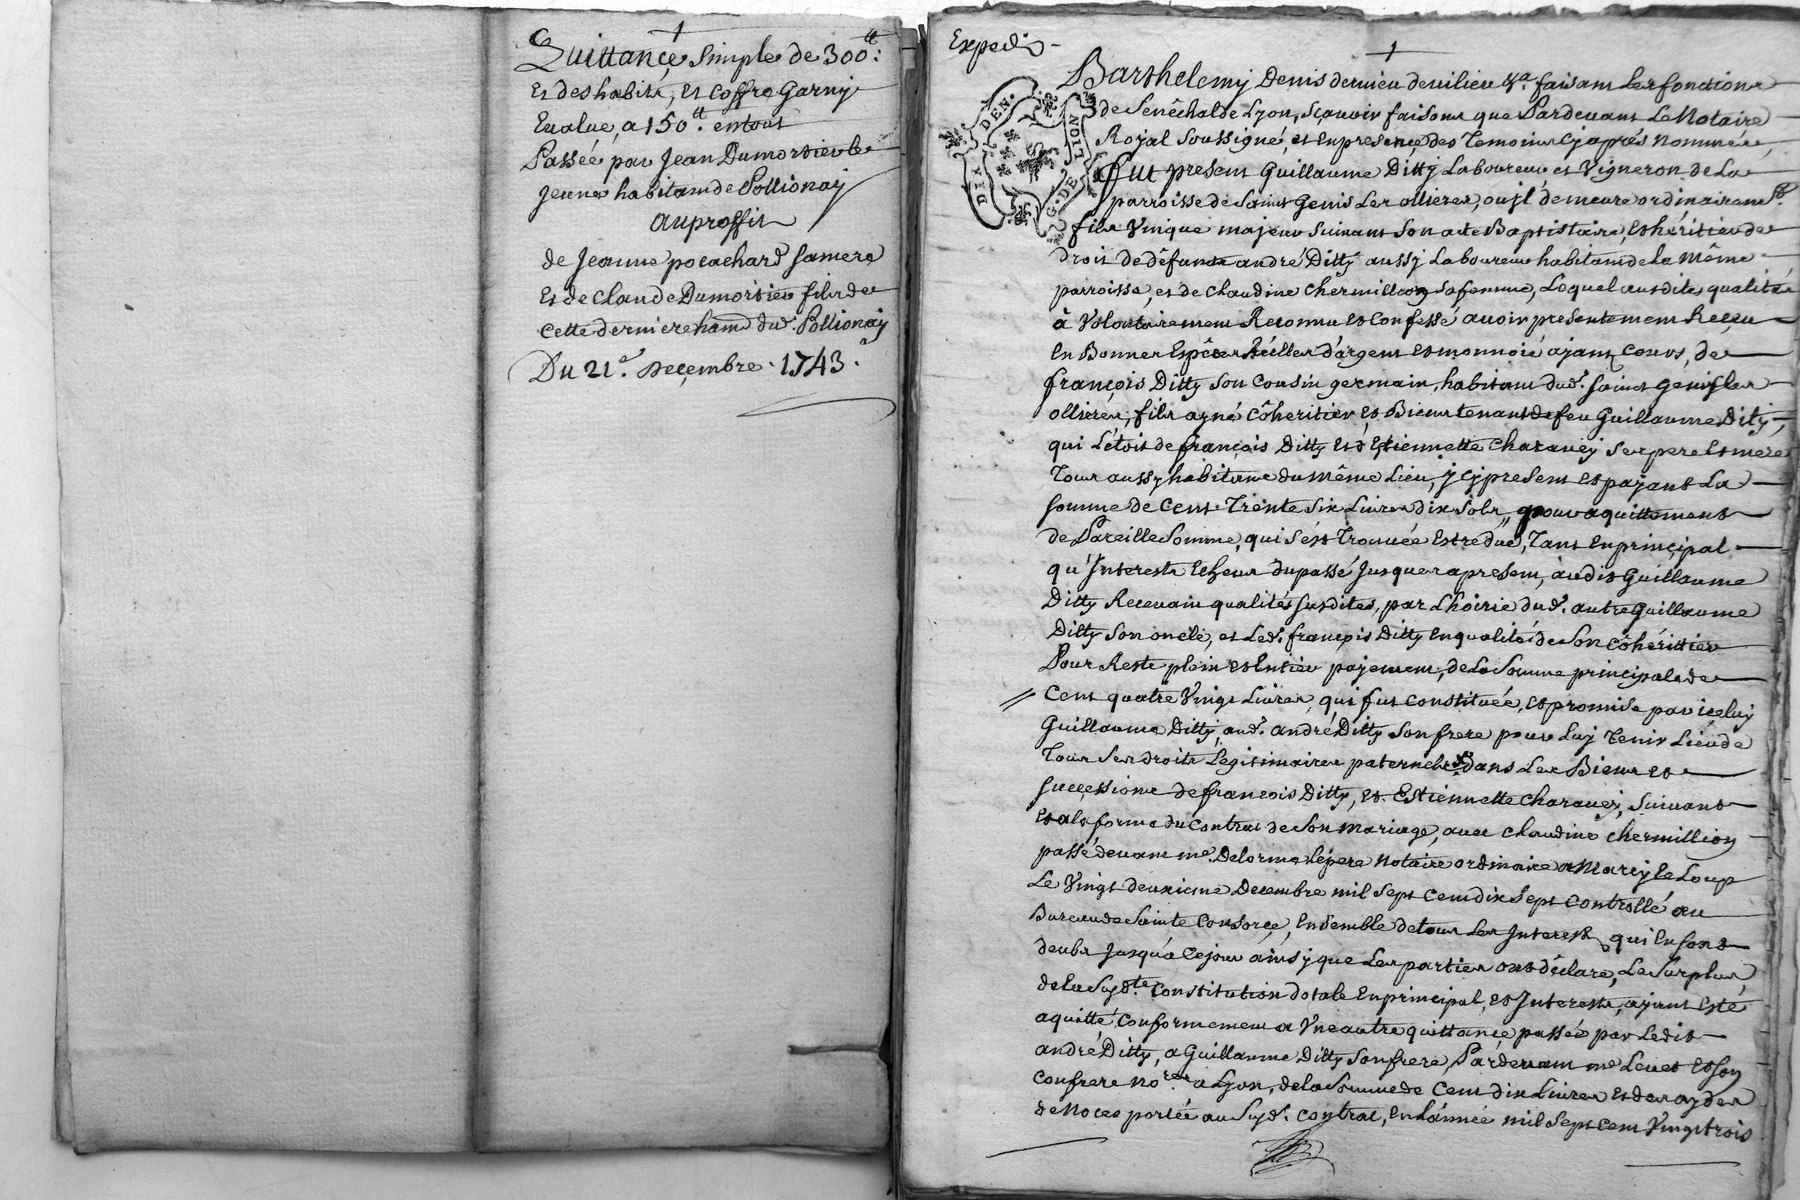 Quittance simple de 300ᵗᵗ.
Et des habits, et coffre Garny
Evalué, a 150ᵗᵗ. entout
Passée par Jean Dumortier le
jeune habitant de Pollionay
au proffit
de Jeanne pocachard sa mere
Et de Claude Dumortier fils de
cette derniere hant dud. Pollionay
Du 21.e Decembre. 1743.
Exped.
GEN. DE LION
Barthelemy Denis de vieu devilieu &a. faisant Les fonctions
de Senêchal de Lyon, sçavoir faisons que Pardevant Le Notaire
Royal soussigné, et en presence des Temoins cy aprés nommés,
fut present Guillaume Ditty Laboureur et Vigneron de La
parroisse de Saint Genis Les ollieres, ou jl demeure ordinairemt.
fils Vinque majeur suivant son acte Baptistaire, Et héritier de
droit de défunt andré Ditty aussy Laboureur habitant de la même
parroisse, et de Claudine chermillion sa femme, Lequel ausdites qualités
à Volontairement Reconnu et Confessé avoir presentement Reçeu
En Bonnes Espêces Réelles d'argent et monnoié ajant cours, de
françois Ditty son cousin germain, habitant dud. saint genis les
ollieres, fils ayné côheritier, et Biens tenant de feu Guillaume Ditty,
qui L'étoit de françois Ditty et d'Estiennette Charavej ses pere et mere
Tous aussy habitans du même Lieu, j cy present et payant La
somme de Cent Trente Six Livres dix sols, pour aquittement
de Pareille Somme, qui s'est Trouvée Estre düe, Tant en principal
qu'Interests Echeus du passé Jusques apresent, audit Guillaume
Ditty Recevant qualités susdites, par L'hoirie dud. autre Guillaume
Ditty son oncle, et Led. françois Ditty en qualité de son Côhéritier
Pour Reste plein et Entier payement, de La Somme principale de
Cent quatre Vingt Livres, qui fut constituée, et promise par iceluy
Guillaume Ditty, aud. andré Ditty son frere pour Luy Tenir Lieu de
Tous Ses droits Légitimaires paternels dans Les Biens et
successions de francois Ditty, et Estiennette Charavej, suivant
Et a la forme du Contrat de Son mariage, avec Claudine chermillion
passé devant me. Delorme Le pere Notaire ordinaire a Marcy le Loup
Le Vingt deuxieme Decembre mil Sept Cent dix Sept Controllé au
Bureau de Sainte Consorce, Ensemble de tous Les Interest, qui En sont
deubs Jusqu'a Ce jour ainsy que Les parties ont déclaré, Le Surplus
de la Sujdte. Constitution dotale En principal, et Interests, ajant Esté
aquitté, conformement a Vne autre quittance passée par Ledit
andré Ditty, a Guillaume Ditty son frere, Pardevant me Levet et son
Confrere nores a Lyon, de la Somme de Cent dix Livres et des
de Noces portée au Sujd. contrat, en L'année mil Sept Cent Vingt trois